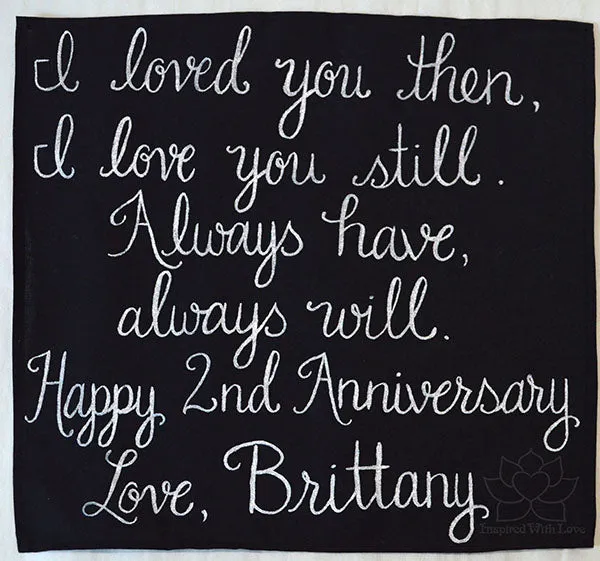 I loved you then,
I love you still.
Always have,
always will.
Happy 2nd Anniversary
Love, Brittany
Inspired With Love